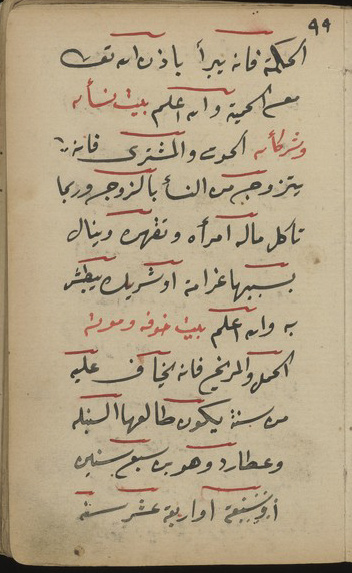 ٩٩
الحكمة فانه يبرأ باذن الله تعالى
مع الحمية والله اعلم بيت نسأه
وشركأه الحوت والمشترى فانه
يتزوج من النسأ بالزوج وربما
تاكل ماله امرأه وتقهره وينال
بسببها غرامة او شريك يبطش
به والله اعلم بيت خوفه وموته
الحمل والمريخ فانه يخاف عليه
من سنة يكون طالعها السنبله
وعطارد وهو بن سبع سنين
أو تسعة او اربعة عشر سنة